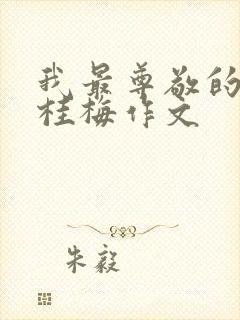 我最尊敬的
桂梅作文
朱毅